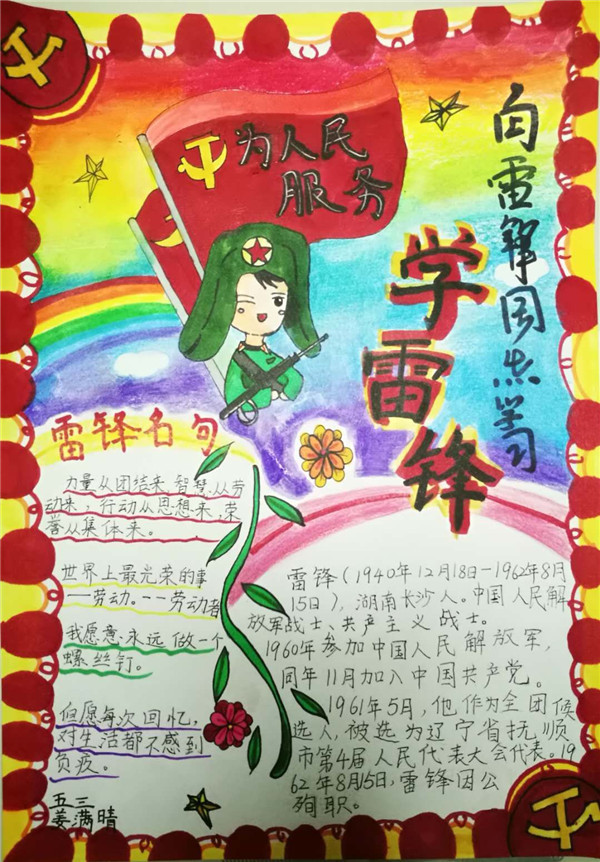 为人民
服务
向雷锋同志学习
学雷锋
雷锋名句
力量从团结来,智慧从劳
动来,行动从思想来,荣
誉从集体来。
世界上最光荣的事
—劳动。——劳动者
我愿意永远做一个
螺丝钉。
但愿每次回忆,
对生活都不感到
负疚。
五三
姜满晴
雷锋(1940年12月18日—1962年8月
15日),湖南长沙人。中国人民解
放军战士、共产主义战士。
1960年参加中国人民解放军,
同年11月加入中国共产党。
1961年5月,他作为全团候
选人,被选为辽宁省抚顺
市第4届人民代表大会代表。19
62年8月15日,雷锋因公
殉职。